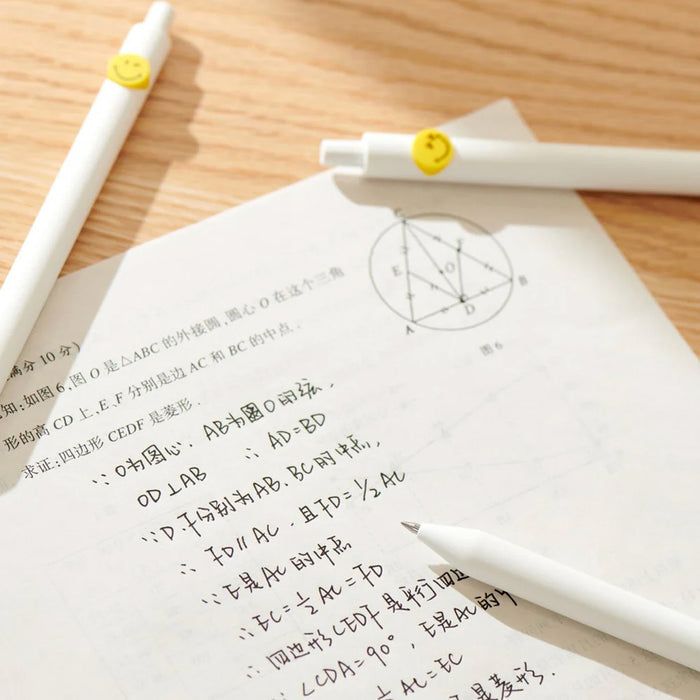 C
F
E
O
B
D
A
图 6
满分 10 分)
知:如图 6,圆 O 是△ABC 的外接圆,圆心 O 在这个三角
形的高 CD 上,E、F 分别是边 AC 和 BC 的中点.
求证:四边形 CEDF 是菱形.
∵ O为圆心. AB为圆O的弦,
OD⊥AB ∴ AD=BD
∵ D.F分别为AB.BC的中点,
∴ FD∥AC. 且FD=1/2 AC
∵ E是AC的中点
∴ EC=1/2 AC=FD
∴ 四边形CEDF是平行四边
∵ ∠CDA=90°, E是AC的中
1/2 AC=EC
是菱形.